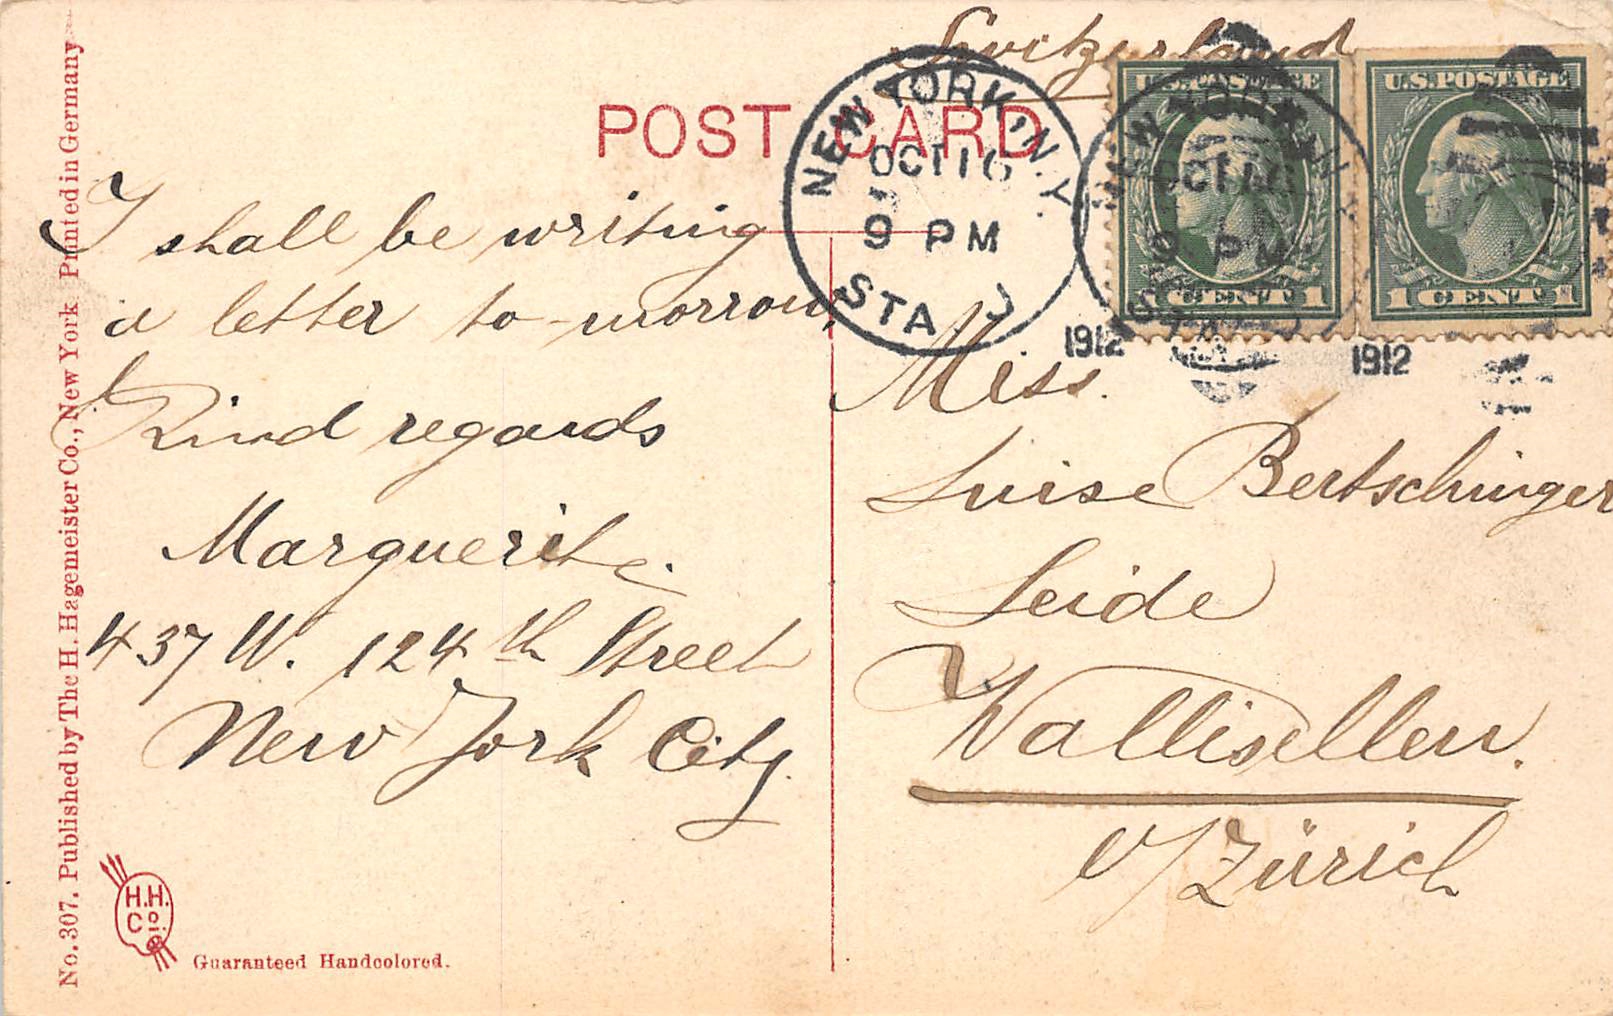 Switzerland
POST CARD
NEW YORK, N.Y.
OCT 16
9 PM
STA. J
1912
NEW YORK, N.Y.
OCT 16
9 PM
STA. J
1912
U.S. POSTAGE
1 CENT 1
U.S. POSTAGE
1 CENT 1
I shall be writing
a letter to-morrow,
Kind regards
Marguerite.
437 W. 124th Street
New York City.
Miss.
Luise Bertschinger
Seide
Wallisellen.
b/Zürich
No. 307. Published by The H. Hagemeister Co., New York Printed in Germany
H.H.
Co.
Guaranteed Handcolored.